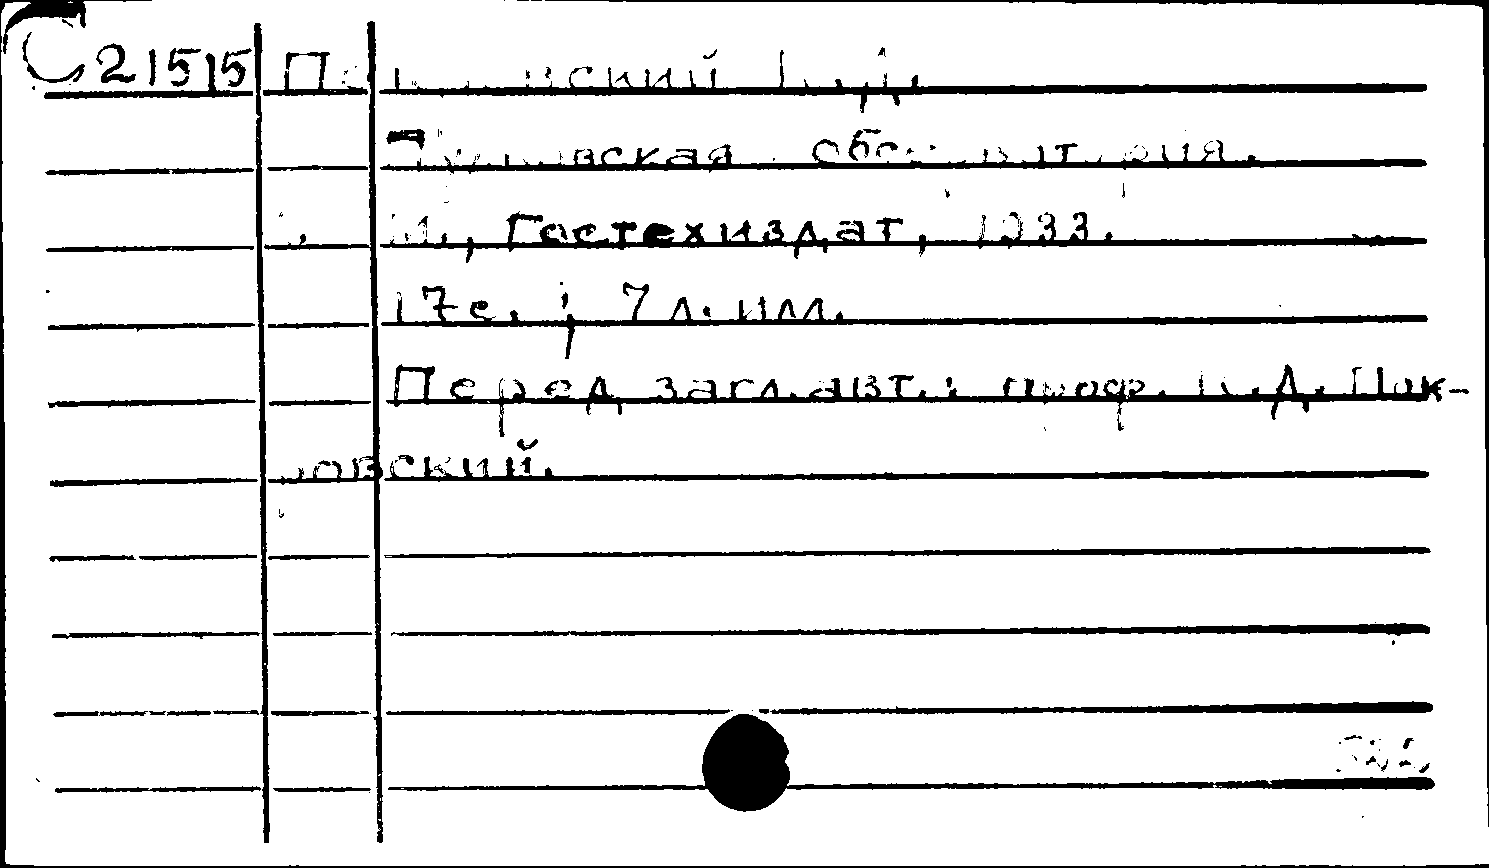 С21515 Покровский К.Д.
Пулковская обсерватория.
М., Гостехиздат, 1933.
17с. ; 7 л. илл.
Перед загл.авт.: проф. К.Д. Пок-
ровский.